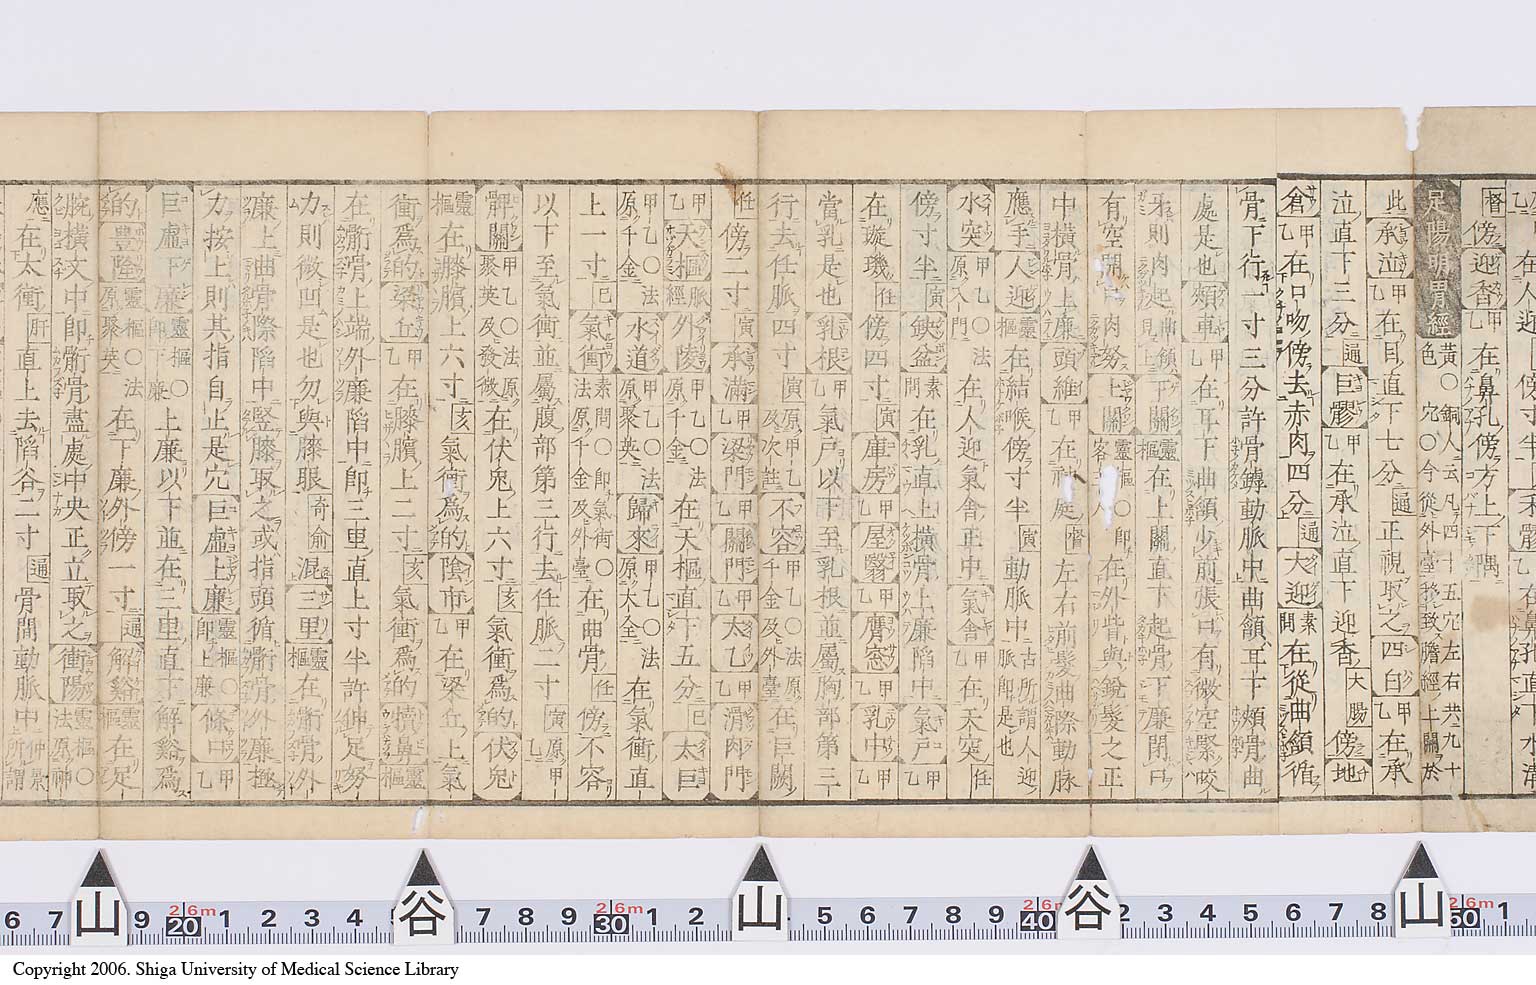 督傍迎香甲乙在鼻孔傍方上下隅
足陽明胃經黃色○銅人云凡四十五穴左右共九十穴○今從外臺移致膽經上關於
此承泣甲乙在目直下七分逼正視取之四白甲乙在承
泣直下三分逼巨髎甲乙在承泣直下迎香大腸傍地
倉甲乙在口吻傍去赤肉四分逼大迎素問在從曲頷循
骨下行一寸三分許骨罅動脈中曲頷耳下頰骨曲
處是也頰車甲乙在耳下曲頷少前張口有微空緊咬
牙則肉起曲頷見上下關靈樞在上關直下起骨下廉閉口
有空開口肉努上關靈樞○即客主人在外眥與銳髮之正
中橫骨上廉頭維甲乙在神庭督左右前髮曲際動脉
應手人迎靈樞在結喉傍寸半寅動脈中古所謂人迎脈即是也
水突甲乙○法原入門在人迎氣舍正中氣舍甲乙在天突任
傍寸半寅缺盆素問在乳直上橫骨上廉陷中氣戶甲乙
在璇璣任傍四寸寅庫房甲乙屋翳甲乙膺窓甲乙乳中甲乙
當乳是也乳根甲乙氣戶以下至乳根並屬胸部第三
行去任脈四寸寅原甲乙及次註不容甲乙○法原千金及外臺在巨闕
任傍二寸寅承滿甲乙梁門甲乙關門甲乙太乙甲乙滑肉門
甲乙天樞脈經外陵甲乙○法原千金在天樞直下五分巳太巨
甲乙○法原千金水道甲乙○法原聚英歸來甲乙○法原大全在氣衝直
上一寸巳氣衝素問○即氣衝○法原千金及外臺在曲骨任傍不容
以下至氣衝並屬腹部第三行去任脈二寸寅原甲乙
髀關甲乙○法原聚英及發微在伏兎上六寸亥氣衝爲的伏兎
靈樞在膝臏上六寸亥氣衝爲的陰市甲乙在梁丘上氣
衝爲的梁丘甲乙在膝臏上二寸亥氣衝爲的犢鼻靈樞
在䯒骨上端外廉陷中即三里直上寸半許伸足努
力則微凹是也勿與膝眼奇俞混三里靈樞在䯒骨外
廉上曲骨際陷中竪膝取之或指頭循䯒骨外廉極
力按上則其指自止是穴巨虛上廉靈樞○即上廉條口甲乙
巨虛下廉靈樞○即下廉上廉以下並在三里直下解谿爲
的豐隆靈樞○法原聚英在下廉外傍一寸逼解谿靈樞在足
腕橫文中即䯒骨盡處中央正立取之衝陽靈樞○法原神應
在太衝肝直上去陷谷二寸逼骨間動脈中仲景所謂